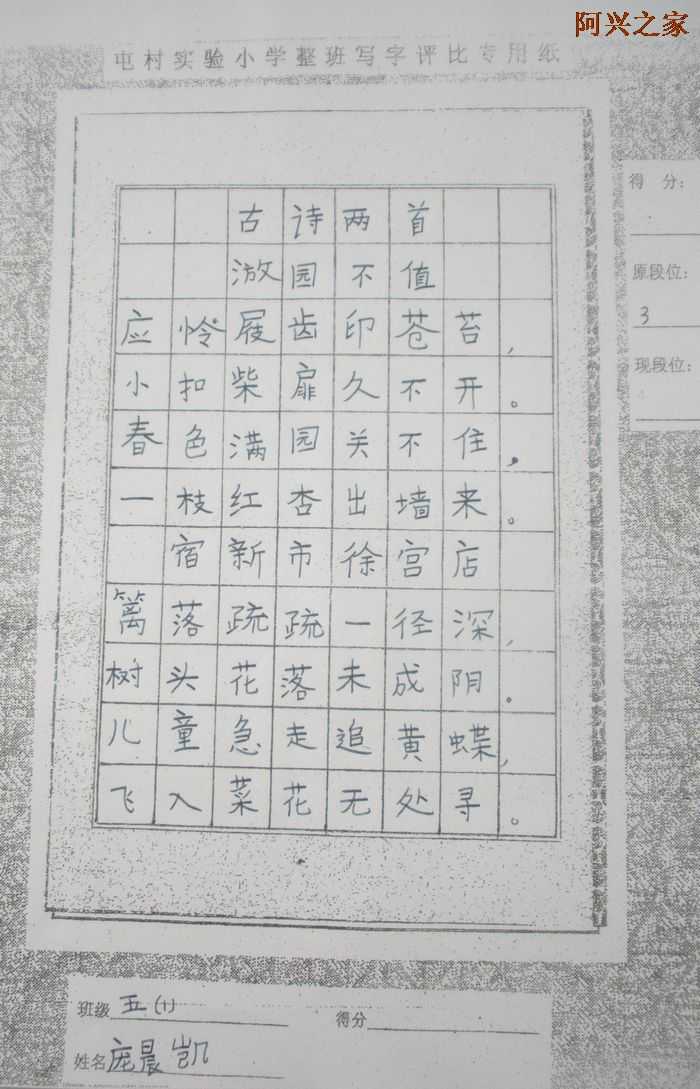 阿兴之家
屯村实验小学整班写字评比专用纸
得 分：
原段位：
3
现段位：
古诗两首
游园不值
应怜屐齿印苍苔，
小扣柴扉久不开。
春色满园关不住，
一枝红杏出墙来。
宿新市徐宫店
篱落疏疏一径深，
树头花落未成阴。
儿童急走追黄蝶，
飞入菜花无处寻。
班级 五（1）
得分
姓名 庞晨凯